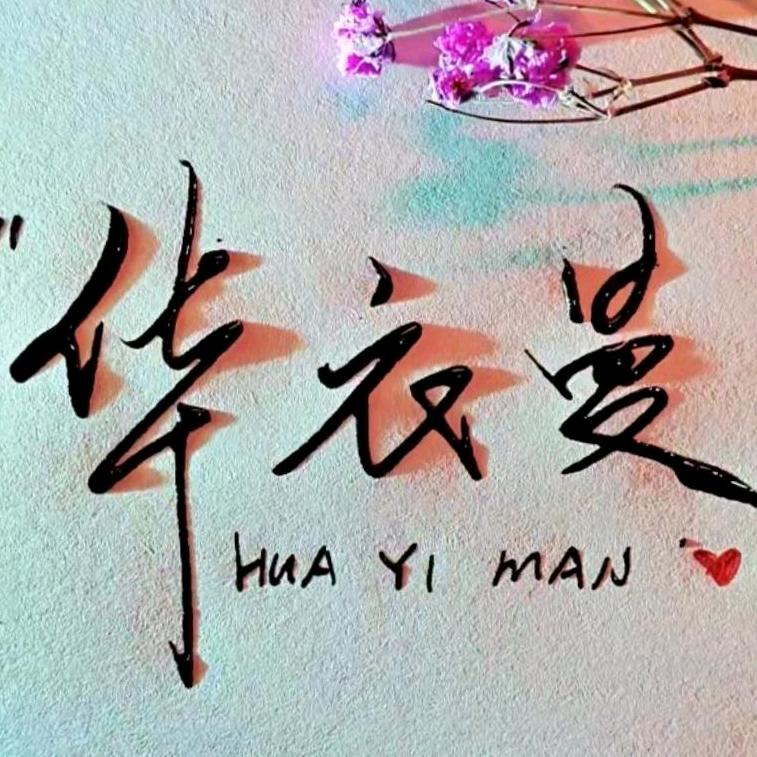 "华衣曼
HUA YI MAN